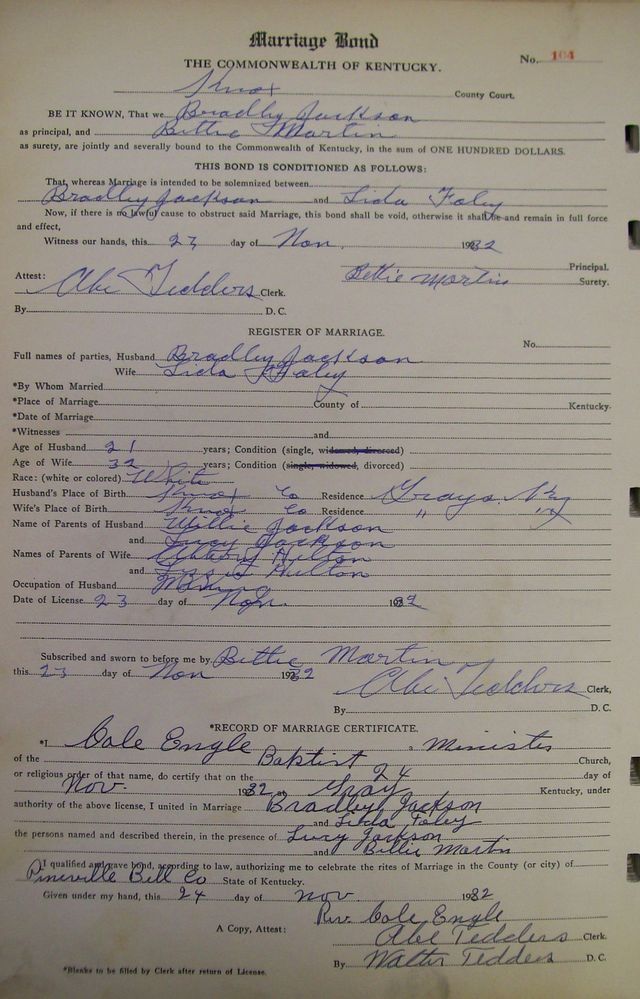 Marriage Bond
THE COMMONWEALTH OF KENTUCKY.
No. 164
Knox County Court.
BE IT KNOWN, That we Bradley Jackson
as principal, and Bettie Martin
as surety, are jointly and severally bound to the Commonwealth of Kentucky, in the sum of ONE HUNDRED DOLLARS.
THIS BOND IS CONDITIONED AS FOLLOWS:
That, whereas Marriage is intended to be solemnized between
Bradley Jackson and Lida Foley
Now, if there is no lawful cause to obstruct said Marriage, this bond shall be void, otherwise it shall be and remain in full force
and effect,
Witness our hands, this 23 day of Nov. 1932
Principal.
Attest: Bettie Martin Surety.
Abe Tedders Clerk.
By D. C.
REGISTER OF MARRIAGE.
No.
Full names of parties, Husband Bradley Jackson
Wife Lida Foley
*By Whom Married
*Place of Marriage County of Kentucky.
*Date of Marriage
*Witnesses and
Age of Husband 21 years; Condition (single, widowed, divorced)
Age of Wife 32 years; Condition (single, widowed, divorced)
Race: (white or colored) White
Husband's Place of Birth Knox Co Residence Grays Ky
Wife's Place of Birth Knox Co Residence " "
Name of Parents of Husband Willie Jackson
and Lucy Jackson
Names of Parents of Wife Hulton
and Hulton
Occupation of Husband
Date of License 23 day of Nov. 1932
Subscribed and sworn to before me by Bettie Martin
this 23 day of Nov 1932
Abe Tedders Clerk,
By D. C.
*RECORD OF MARRIAGE CERTIFICATE.
*I Cole Engle a Minister
of the Baptist Church,
or religious order of that name, do certify that on the 24 day of
Nov. 1932 Gray Kentucky, under
authority of the above license, I united in Marriage Bradley Jackson
and Lida Foley
the persons named and described therein, in the presence of Lucy Jackson
and Billie Martin
I qualified and gave bond, according to law, authorizing me to celebrate the rites of Marriage in the County (or city) of
Pineville Bell Co State of Kentucky.
Given under my hand, this 24 day of Nov 1932
Rev. Cole Engle
A Copy, Attest: Abe Tedders Clerk.
By Walter Tedders D. C.
*Blanks to be filled by Clerk after return of License.